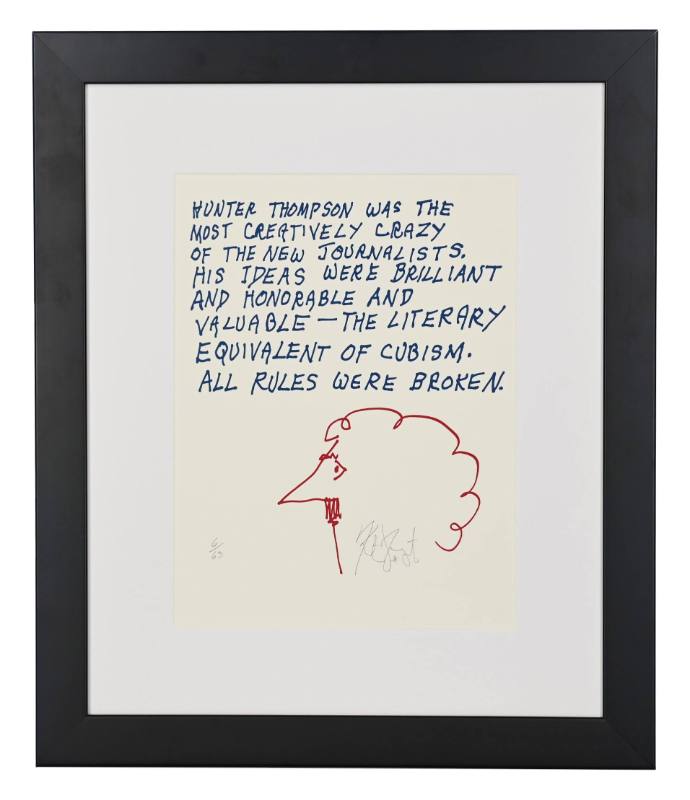 HUNTER THOMPSON WAS THE
MOST CREATIVELY CRAZY
OF THE NEW JOURNALISTS.
HIS IDEAS WERE BRILLIANT
AND HONORABLE AND
VALUABLE — THE LITERARY
EQUIVALENT OF CUBISM.
ALL RULES WERE BROKEN.